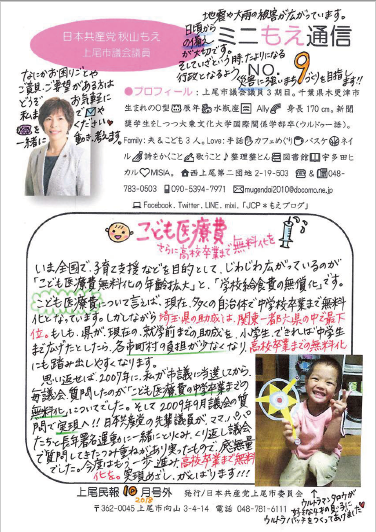 地震や大雨の被害が広がっています。
日頃からの備えが大切です。
そしていざという時、たよりになる
行政となるよう、災害に強いまちづくりを目指します!!
日本共産党 秋山もえ
上尾市議会議員
ミニもえ通信
NO.9
なにかお困りごとや
ご意見、ご要望がある方は
どうぞお気軽に
私まで☎や✉や
ください
一緒に動き、考えます。
●プロフィール:上尾市議会議員3期目。千葉県木更津市
生まれのO型 辰年 水瓶座 Ally 身長170cm。新聞
奨学生をしつつ大東文化大学国際関係学部卒(ウルドゥー語)。
Family:夫&こども3人。Love:手話 カフェめぐり バスケ ネイ
ル 詩をかくこと 歌うこと 整理整とん 図書館 宇多田ヒ
カル♡MISIA。西上尾第二団地2-19-503 ☎&048-
783-0503 090-5394-7971 mugendai2010@docomo.ne.jp
Facebook、Twitter、LINE、mixi、「JCP*もえブログ」
こども医療費
さらに高校卒業まで無料化を
いま全国で、子育て支援などを目的として、じわじわ広がっているのが
「こども医療費無料化の年齢拡大」と、「学校給食費の無償化」です。
こども医療費について言えば、現在、多くの自治体で中学校卒業まで無料
化となっています。しかしながら埼玉県の助成は、関東一都六県の中で最下
位。もしも、県が、現在の、就学前までの助成を、小学生、できれば中学生
まで広げたとしたら、各市町村の負担が少なくなり、高校卒業までの無料化
にも踏み出しやすくなります。
思い返せば、2007年に、私が市議に当選してから、
毎議会、質問したのが「こども医療費の中学卒業までの
無料化」についてでした。そして2009年9月議会の質
問で実現!!日本共産党の先輩議員が、ママパパ
たちと長年署名運動に一緒にとりくみ、くり返し議会
で質問してきたつみ重ねがあり実ったもので、感無量
でした。今度はもう一歩進み、高校卒業まで無料
化を。実現めざし、がんばります!!!
↑ウルトラマンタロウが
好きな4才の息子に
ウルトラバッヂをつくってあげました♡
上尾民報10月号外
2018
発行/日本共産党上尾市委員会
〒362-0045 上尾市向山3-4-14 電話 048-781-6111